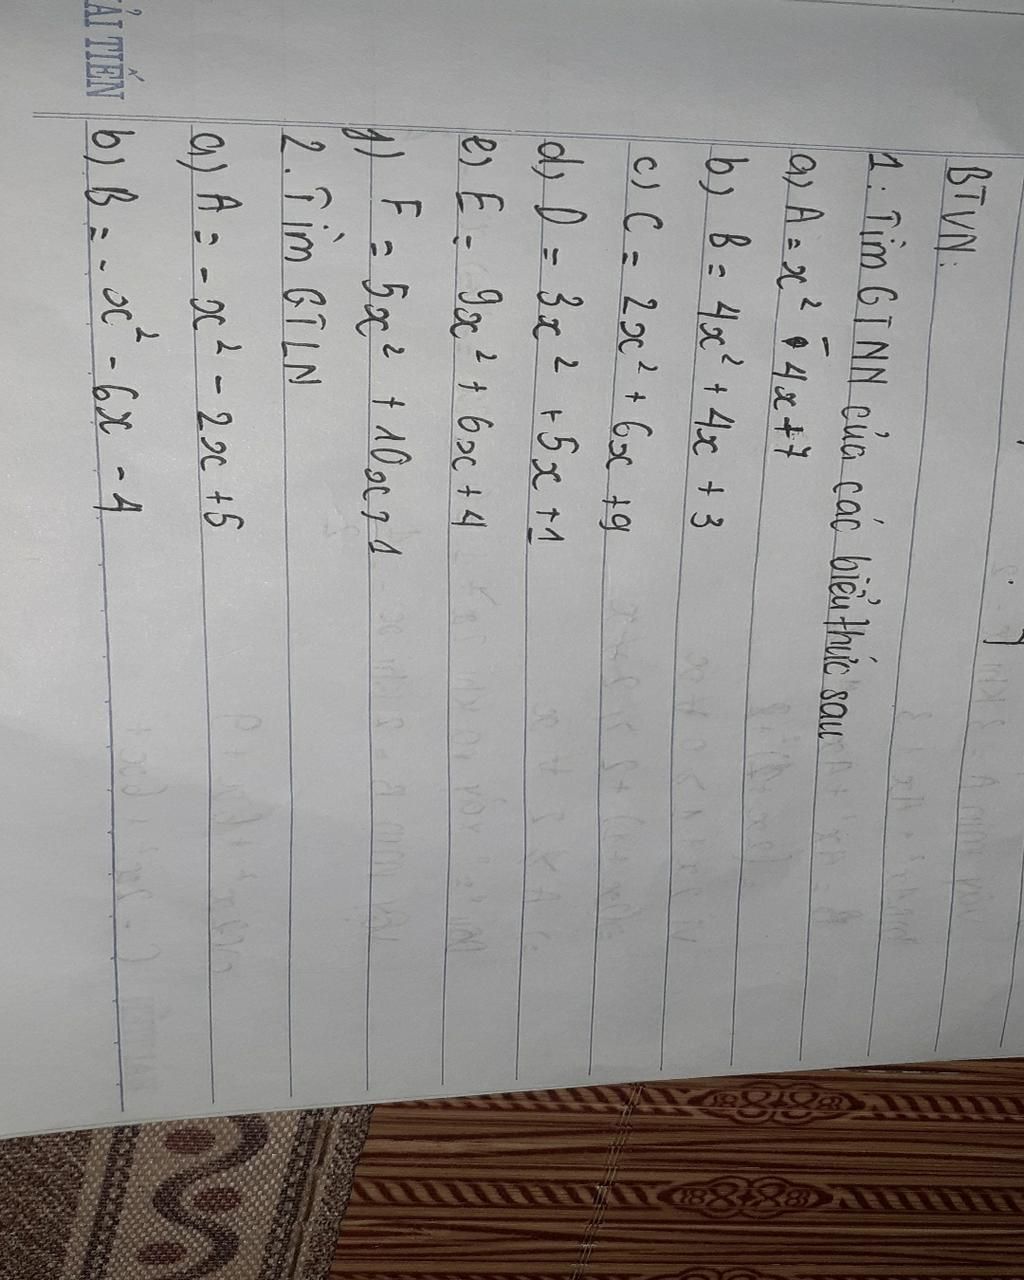 BTVN:
1: Tìm GTNN của các biểu thức sau
a) A = x² - 4x + 7
b) B = 4x² + 4x + 3
c) C = 2x² + 6x + 9
d) D = 3x² + 5x + 1
e) E = 9x² + 6x + 4
F = 5x² + 10x + 1
2. Tìm GTLN
a) A = - x² - 2x + 5
b) B = - x² - 6x - 4
ẢI TIẾN